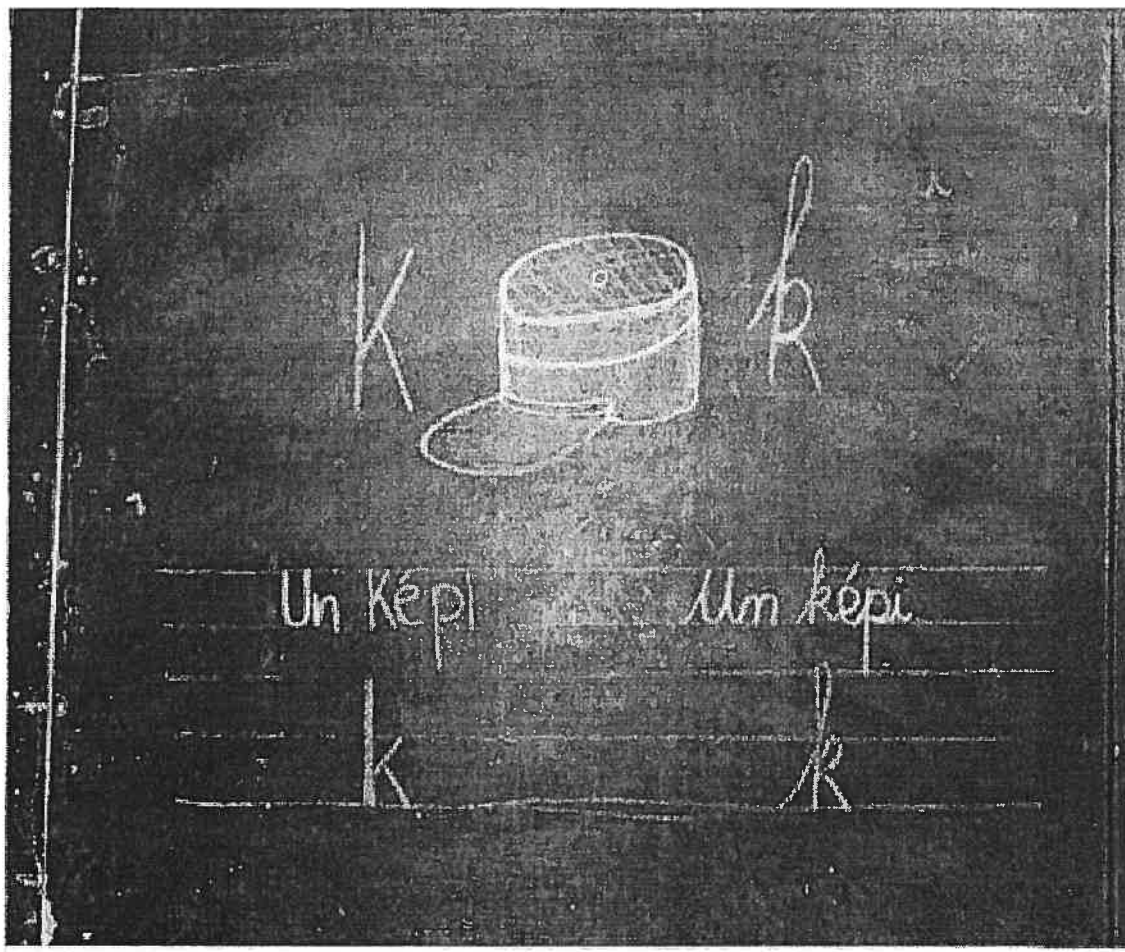 K k
Un Képi Un képi
k k